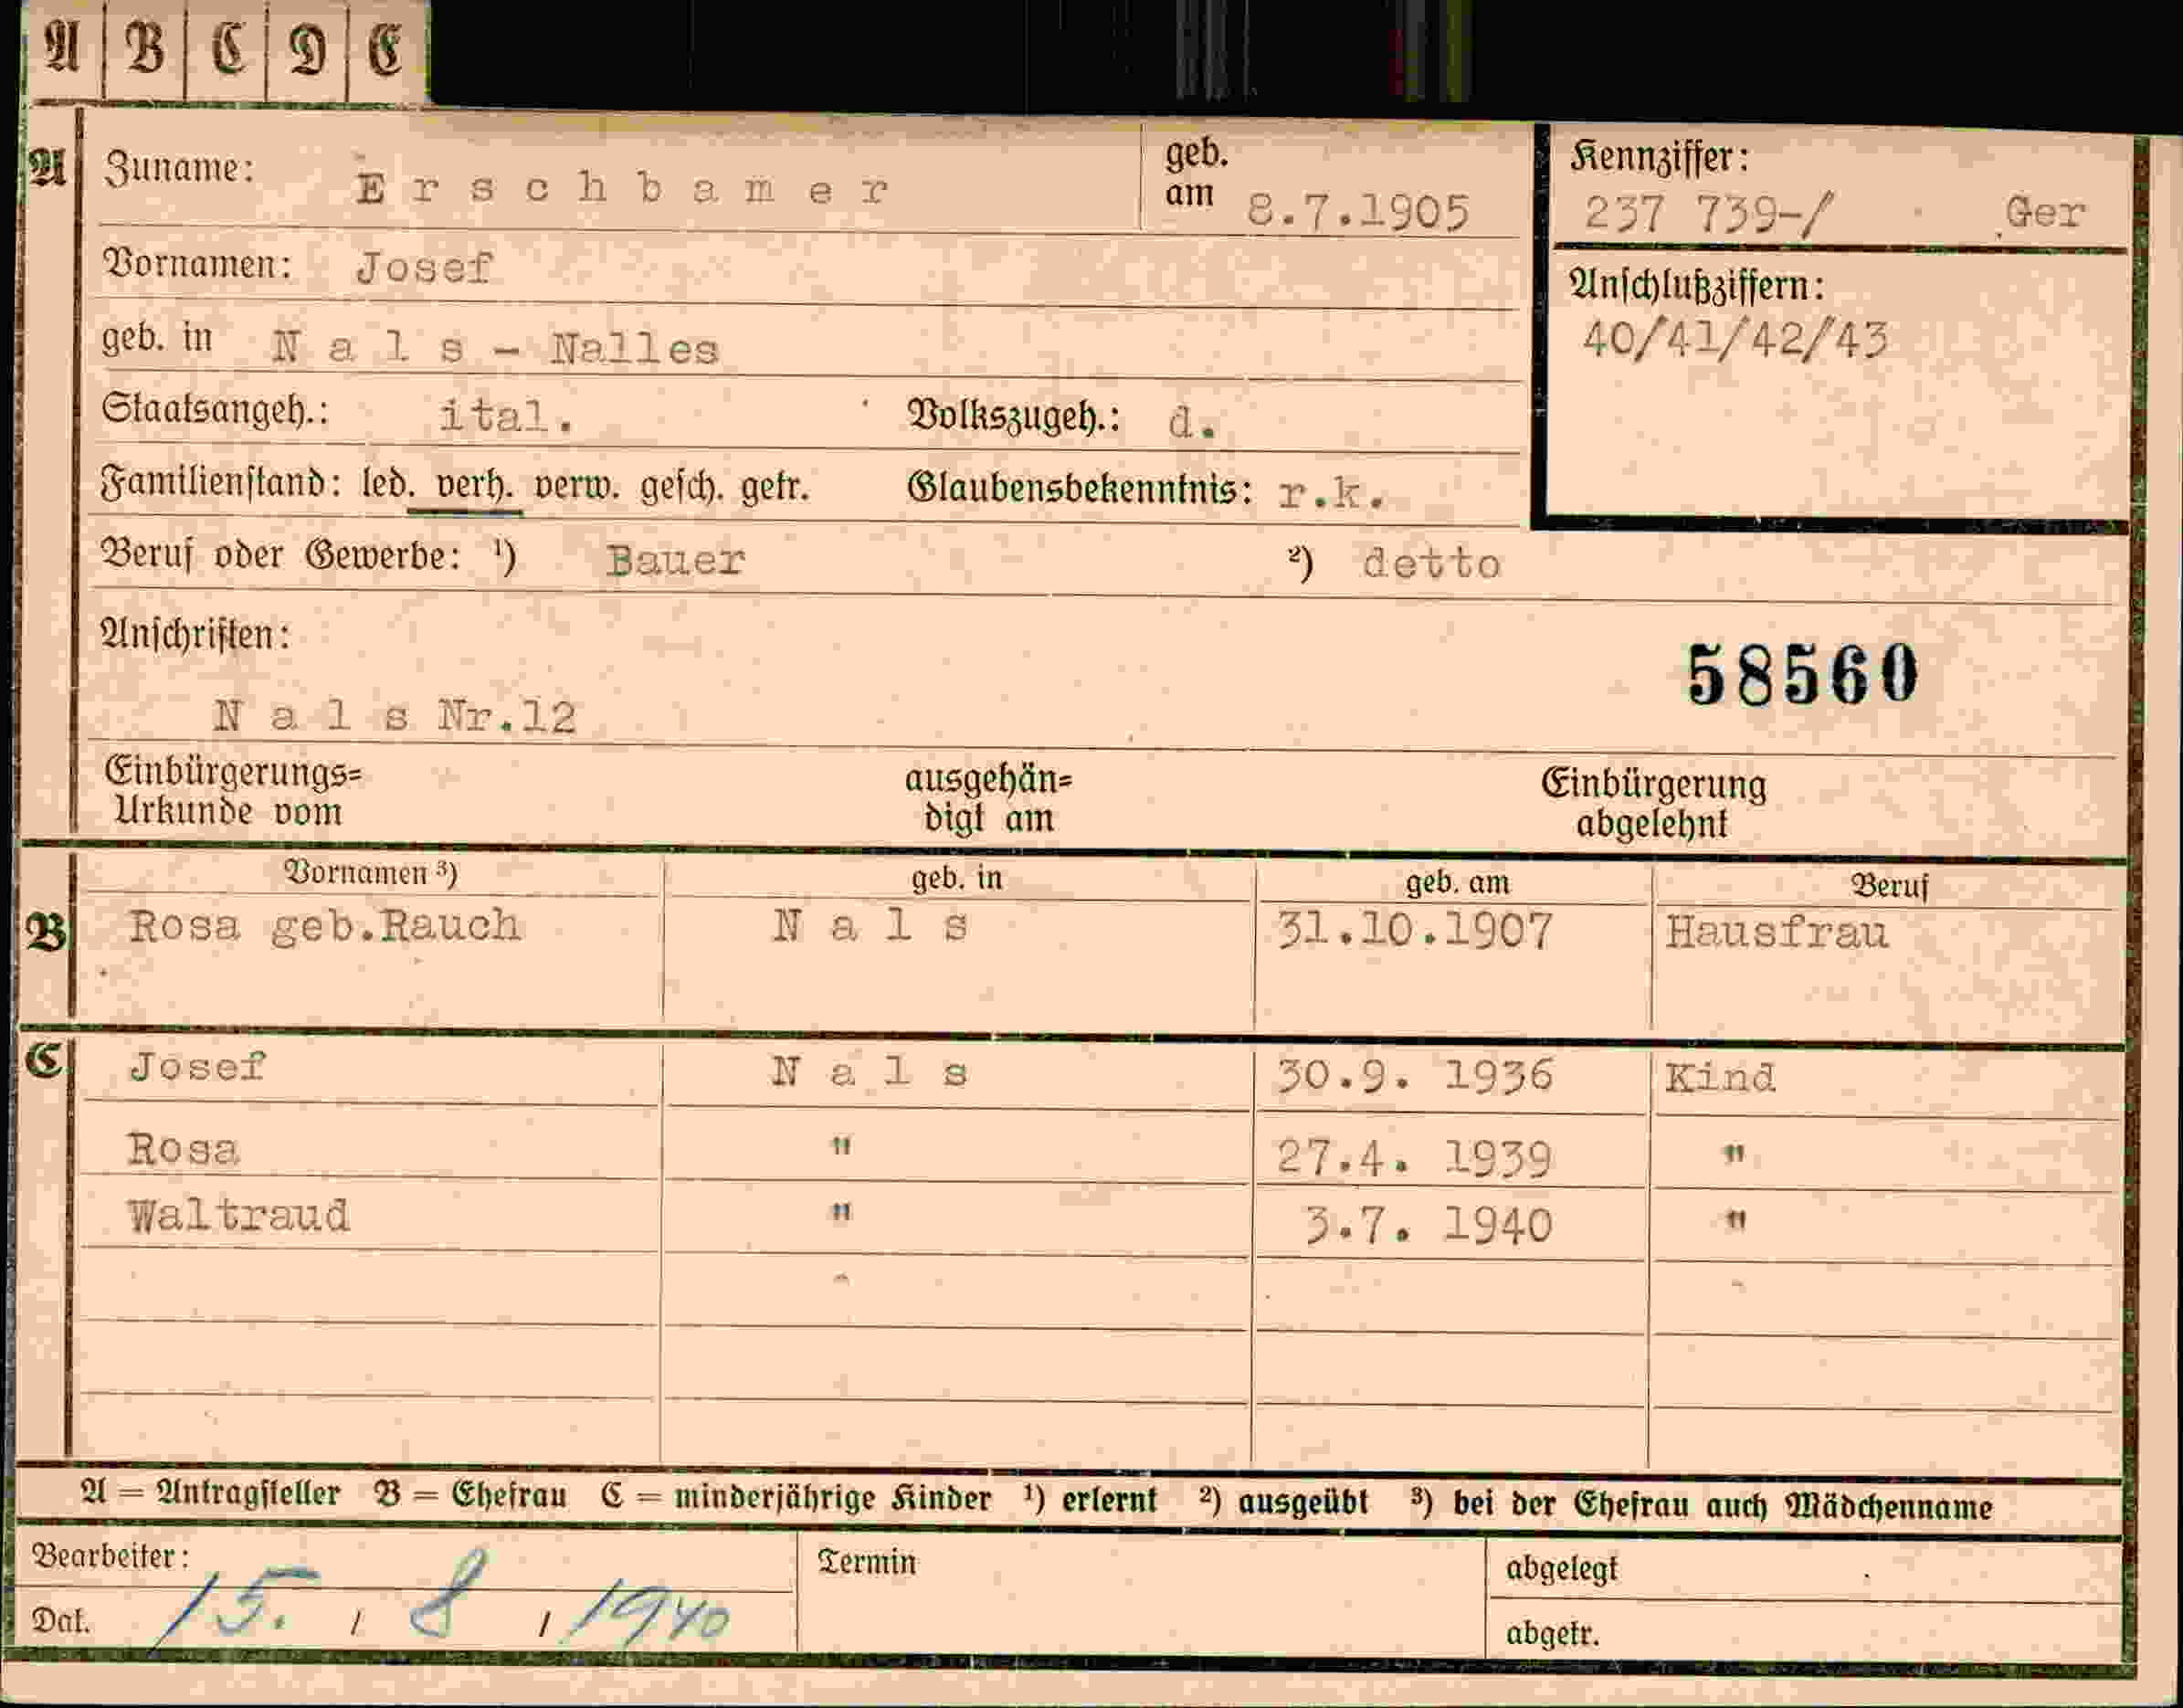 A B C D E
A Zuname: Erschbamer geb. am 8.7.1905 Kennziffer: 237 739-/ Ger
Vornamen: Josef Anschlußziffern:
40/41/42/43
geb. in Nals - Nalles
Staatsangeh.: ital. Volkszugeh.: d.
Familienstand: led. verh. verw. gesch. getr. Glaubensbekenntnis: r.k.
Beruf oder Gewerbe: ¹) Bauer ²) detto
Anschriften:
58560
Nals Nr.12
Einbürgerungs= ausgehän= Einbürgerung
Urkunde vom digt am abgelehnt
Vornamen ³) geb. in geb. am Beruf
B Rosa geb.Rauch Nals 31.10.1907 Hausfrau
C Josef Nals 30.9. 1936 Kind
Rosa " 27.4. 1939 "
Waltraud " 3.7. 1940 "
A = Antragsteller B = Ehefrau C = minderjährige Kinder ¹) erlernt ²) ausgeübt ³) bei der Ehefrau auch Mädchenname
Bearbeiter: Termin abgelegt
Dat. 15. / 8 / 1940 abgetr.